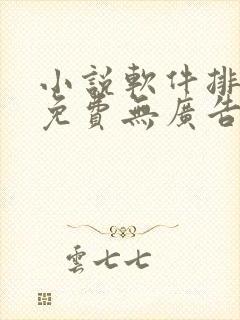 小說軟件排
免費無廣告
雲七七